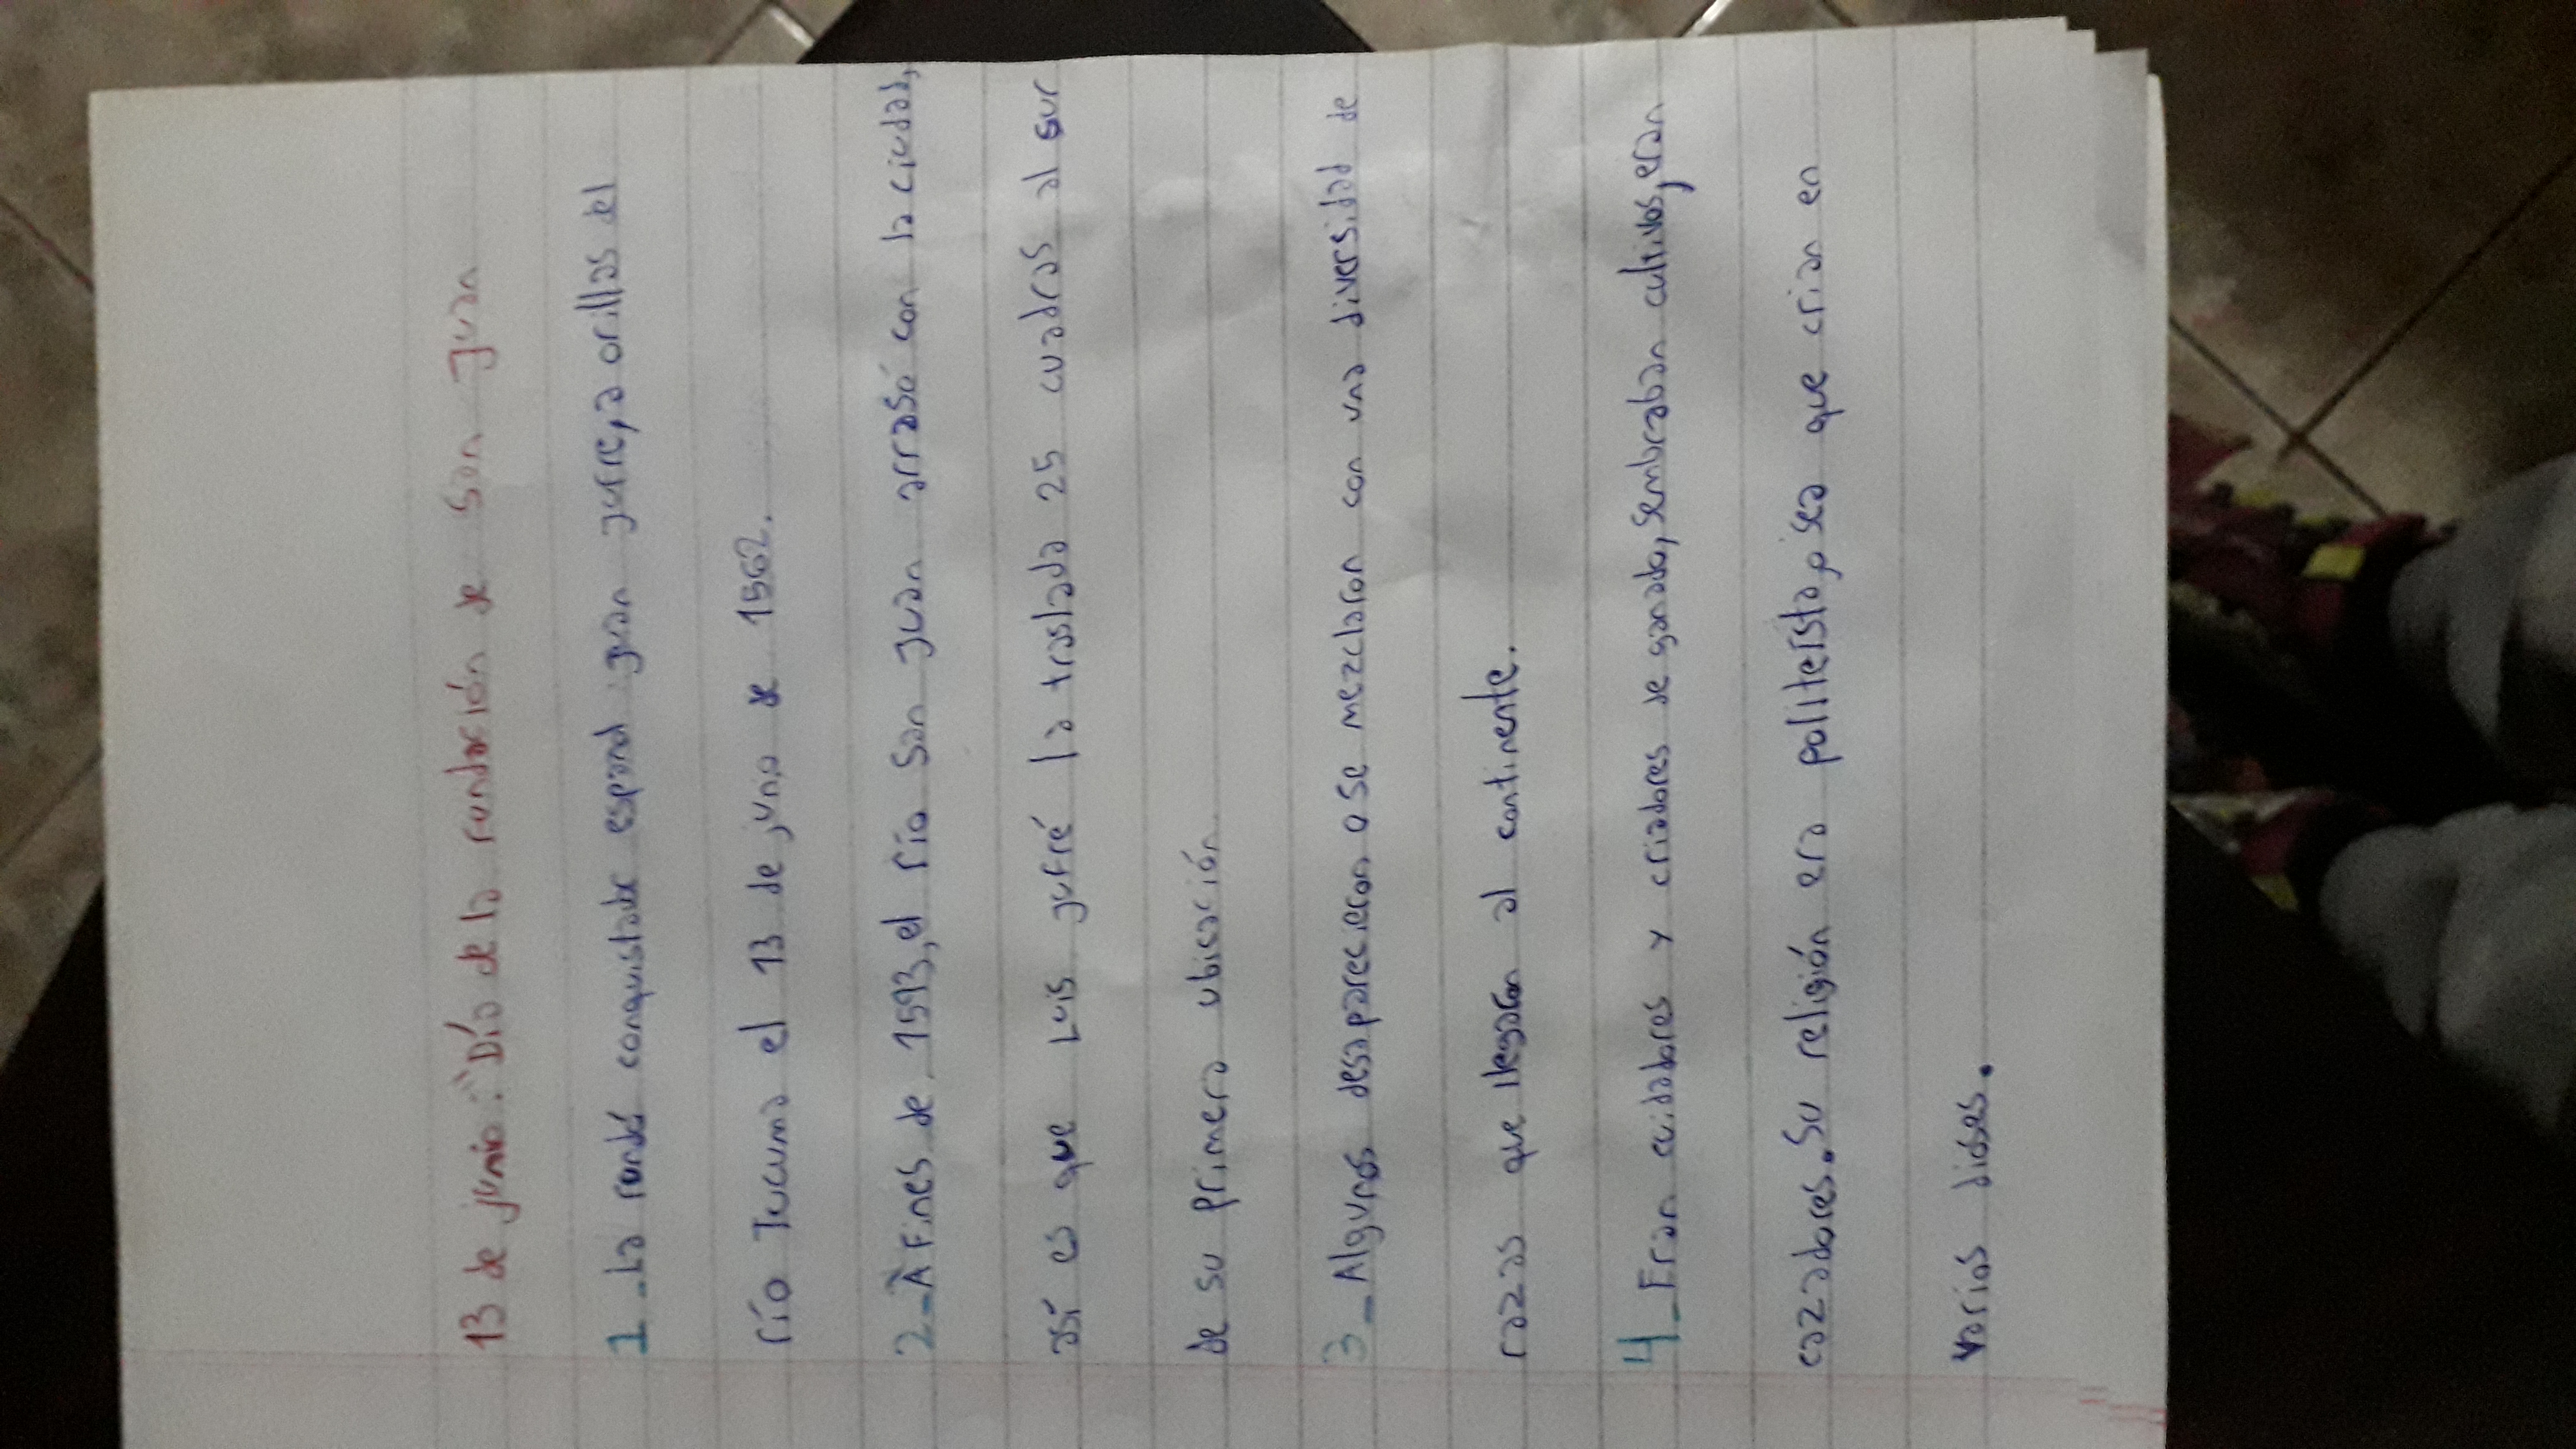 13 de junio: "Día de la fundación de San Juan
1_ La fundó conquistador español juan jufre, a orillas del
río Tucuma el 13 de junio de 1562.
2_ A Fines de 1593, el río San juan arrasó con la ciudad,
así es que Luis jufré la traslada 25 cuadras al sur
de su primera ubicación.
3_ Algunos desaparecieron o se mezclaron con una diversidad de
razas que llegaron al continente.
4_ Eran cuidadores y criadores de ganado, sembraban cultivos, eran
cazadores. Su religión era politeísta, o sea que crian en
varios dioses.